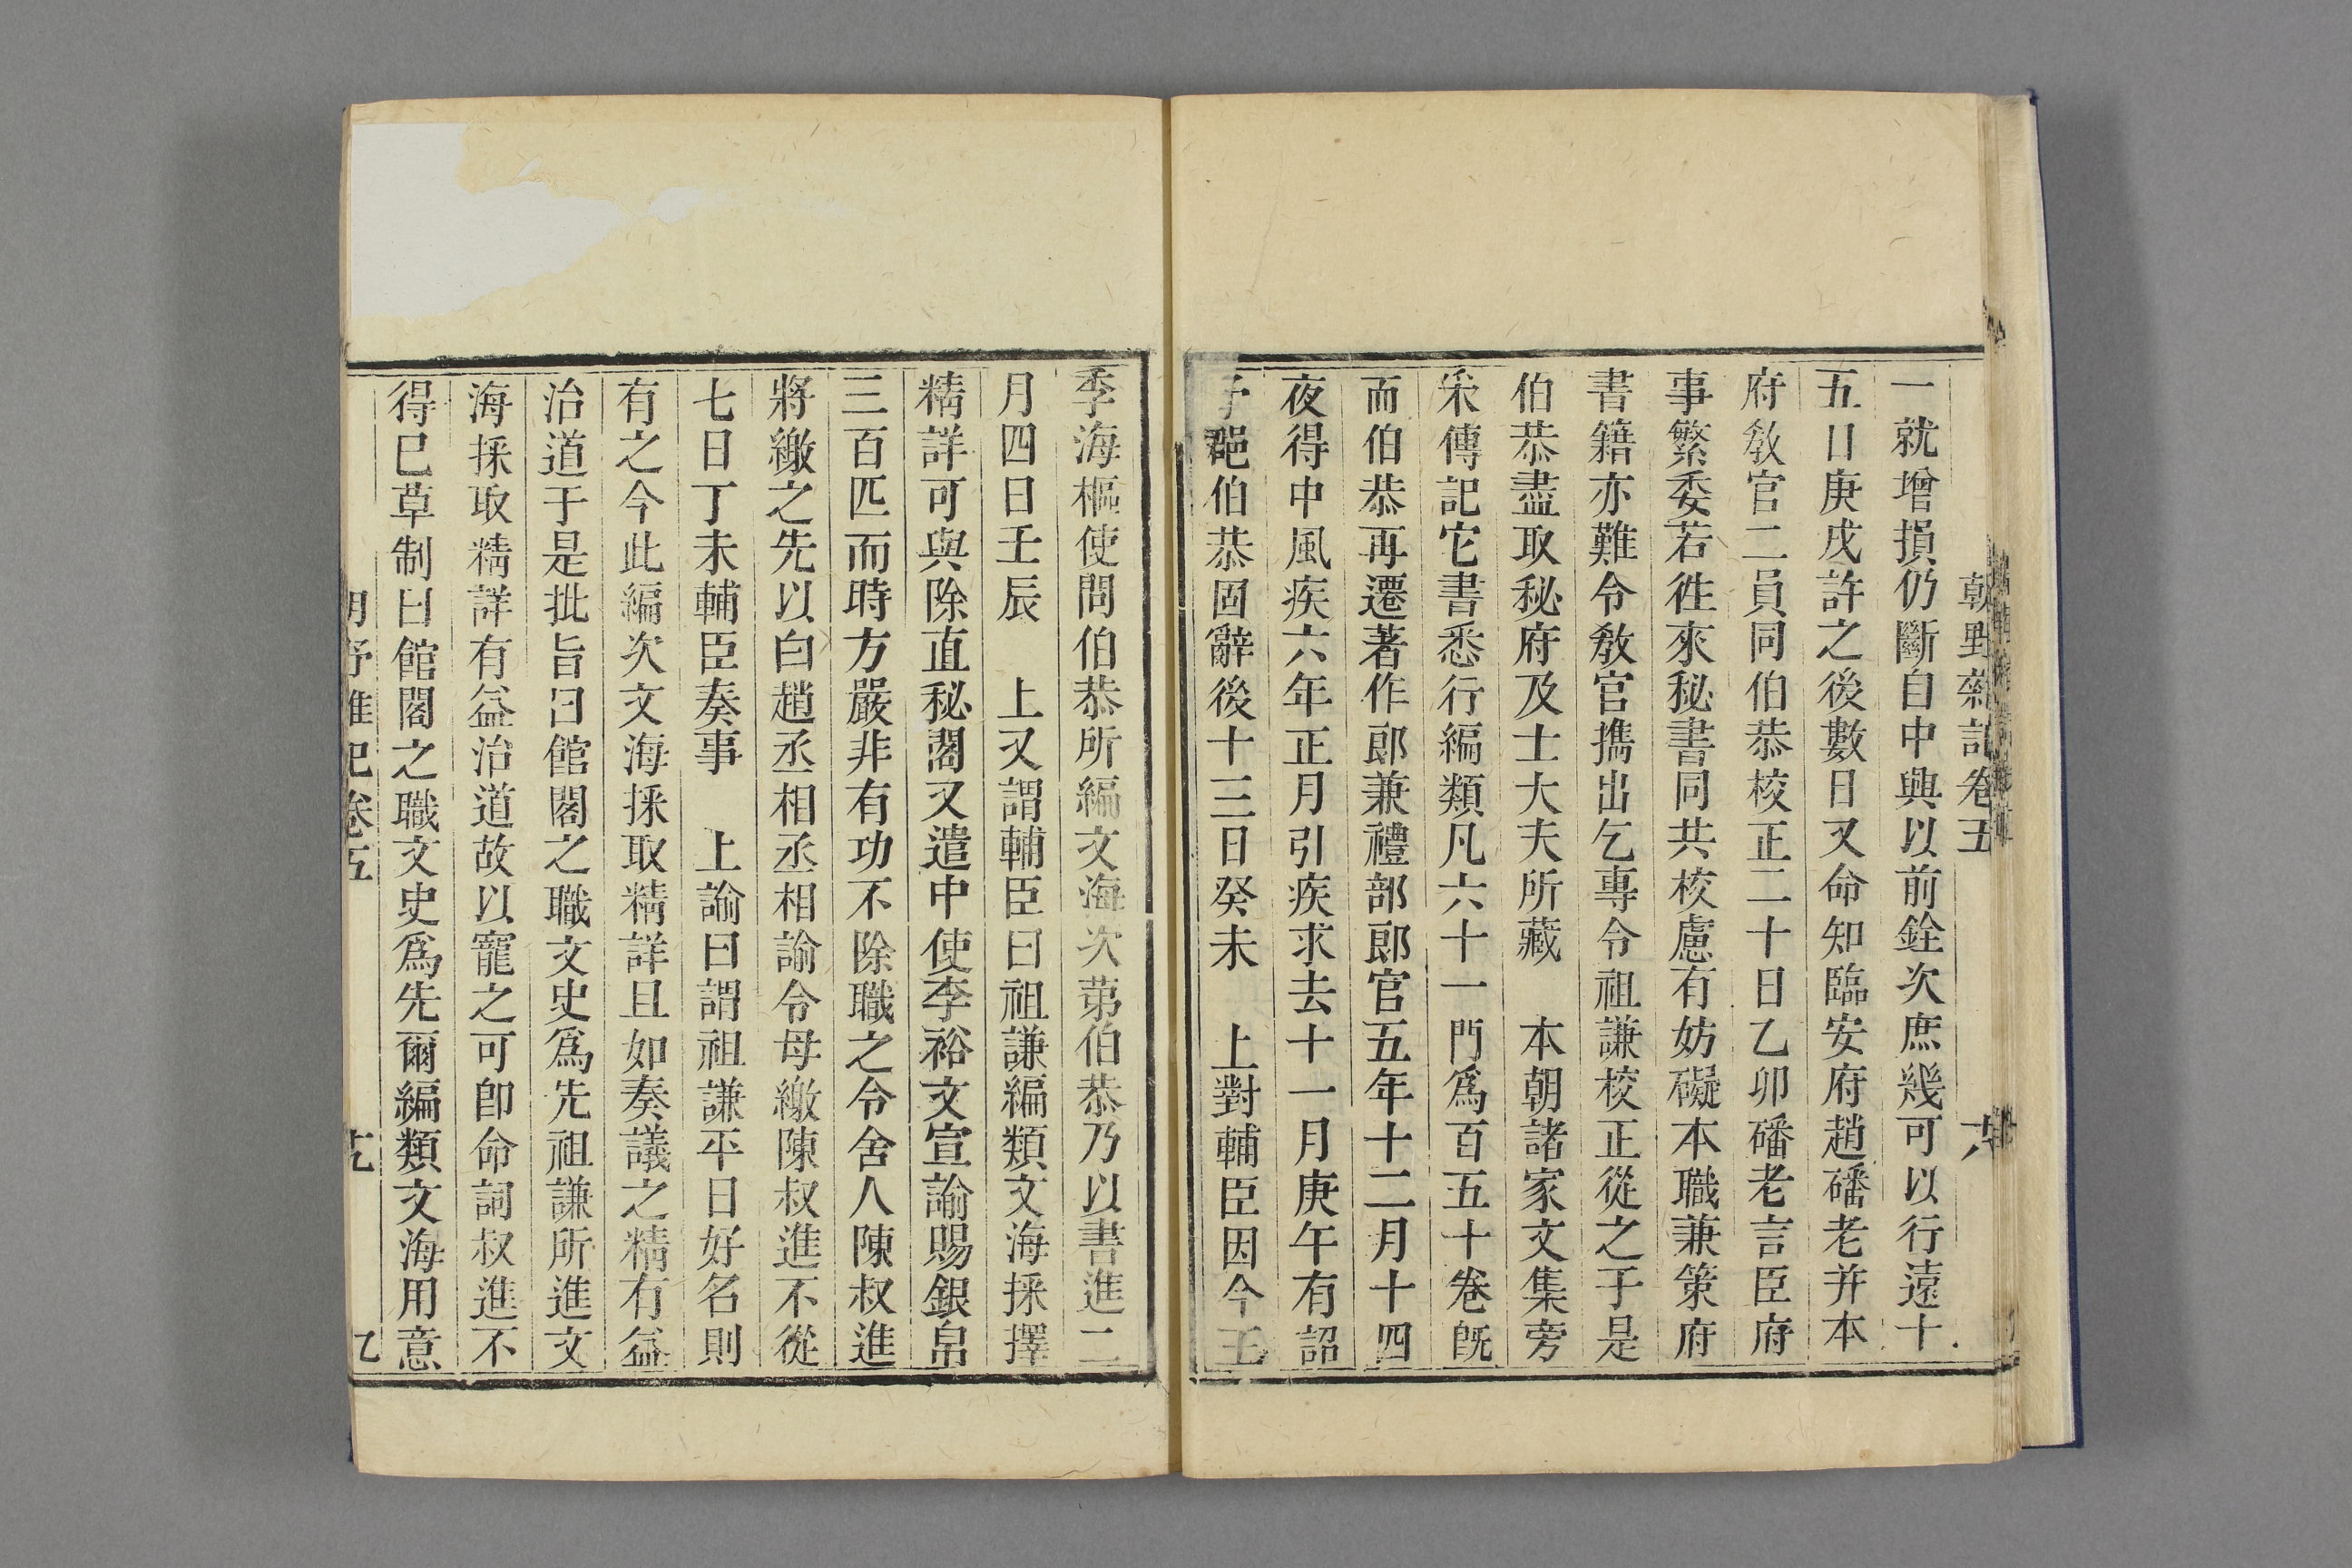 朝野雜記卷五
一就增損仍斷自中興以前銓次庶幾可以行遠十
五日庚戌許之後數日又命知臨安府趙磻老并本
府敎官二員同伯恭校正二十日乙卯磻老言臣府
事繁委若徃來秘書同共校慮有妨礙本職兼策府
書籍亦難令敎官携出乞專令祖謙校正從之于是
伯恭盡取秘府及士大夫所藏　本朝諸家文集旁
采傳記它書悉行編類凡六十一門爲百五十卷旣
而伯恭再遷著作郎兼禮部郎官五年十二月十四
夜得中風疾六年正月引疾求去十一月庚午有詔
予郡伯恭固辭後十三日癸未　上對輔臣因令王
季海樞使問伯恭所編文海次苐伯恭乃以書進二
月四日壬辰　上又謂輔臣曰祖謙編類文海採擇
精詳可與除直秘閣又遣中使李裕文宣諭賜銀帛
三百匹而時方嚴非有功不除職之令舍人陳叔進
將繳之先以白趙丞相丞相諭令母繳陳叔進不從
七日丁未輔臣奏事　上諭曰謂祖謙平日好名則
有之今此編次文海採取精詳且如奏議之精有益
治道于是批旨曰館閣之職文史爲先祖謙所進文
海採取精詳有益治道故以寵之可卽命詞叔進不
得已草制曰館閣之職文史爲先爾編類文海用意